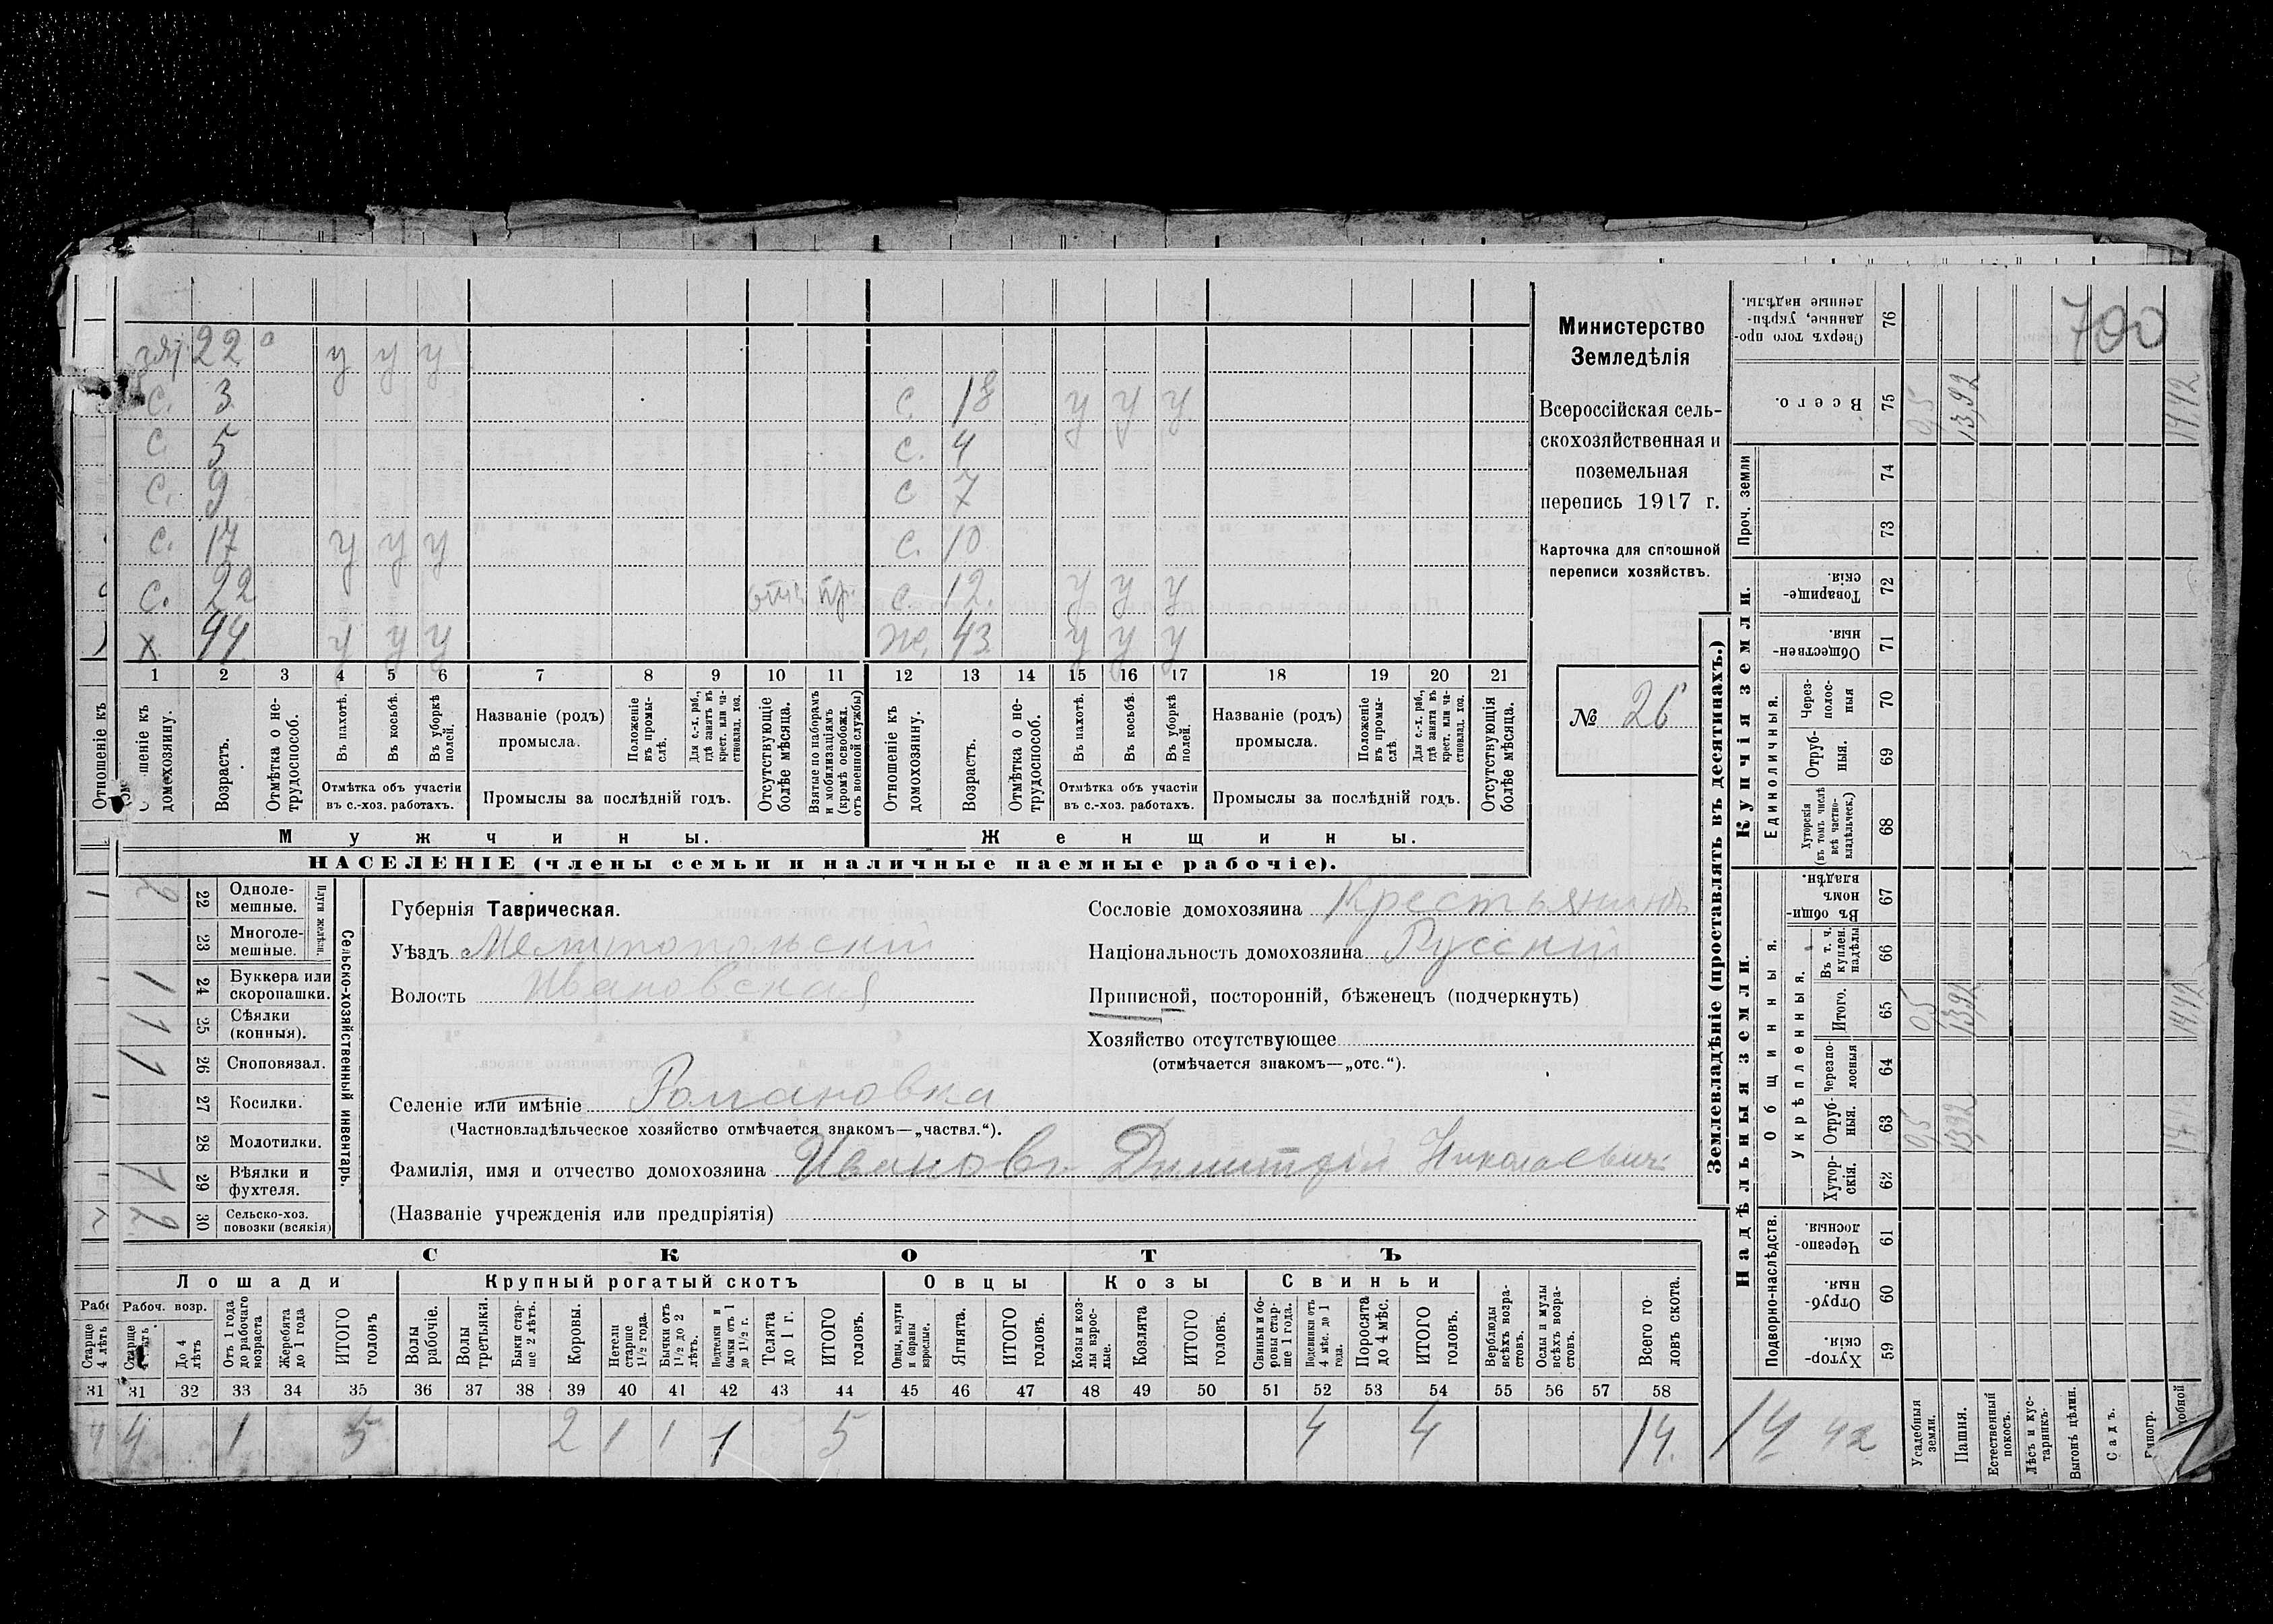 зят 22 о у у у
с. 3 с 18 у у у
с. 5 с. 4
с. 9 с 7
с. 17 у у у с. 10
с. 22 отс. с. 12. у у у
х 44 у у у ж. 43 у у у
1 2 3 4 5 6 7 8 9 10 11 12 13 14 15 16 17 18 19 20 21
Отношеніе къ
шеніе къ домохозяину.
Возрастъ.
Отмѣтка о нетрудоспособ.
Въ пахотѣ.
Въ косьбѣ.
Въ уборкѣ полей.
Отмѣтка объ участіи въ с.-хоз. работахъ.
Названіе (родъ) промысла.
Положеніе въ промыслѣ.
Для с.-х. раб., гдѣ занятъ въ крест. или частновлад. хоз.
Промыслы за послѣдній годъ.
Отсутствующіе болѣе мѣсяца.
Взятые по наборамъ и мобилизаціямъ (кромѣ освобожд. отъ военной службы)
Отношеніе къ домохозяину.
Возрастъ.
Отмѣтка о нетрудоспособ.
Въ пахотѣ.
Въ косьбѣ.
Въ уборкѣ полей.
Отмѣтка объ участіи въ с.-хоз. работахъ.
Названіе (родъ) промысла.
Положеніе въ промыслѣ
Для с.-х. раб., гдѣ занята въ крест. или частновлад. хоз.
Промыслы за послѣдній годъ.
Отсутствующія болѣе мѣсяца.
Мужчины. Женщины.
НАСЕЛЕНІЕ (члены семьи и наличные наемные рабочіе).
Министерство
Земледѣлія
Всероссійская сель-
скохозяйственная и
поземельная
перепись 1917 г.
Карточка для сплошной
переписи хозяйствъ.
№ 26
Сельско-хозяйственный инвентарь.
Плуги желѣзн.
2 22 Однолемешные.
23 Многолемешные.
1 24 Буккера или скоропашки.
1 25 Сѣялки (конныя).
1 26 Сноповязал.
27 Косилки.
28 Молотилки.
1 29 Вѣялки и фухтеля.
2 30 Сельско-хоз. повозки (всякія)
Губернія Таврическая.
Уѣздъ Мелитопольскій
Волость Ивановская
Сословіе домохозяина Крестьянинъ
Національность домохозяина Русскій
Приписной, посторонній, бѣженецъ (подчеркнуть)
Хозяйство отсутствующее
(отмѣчается знакомъ—„отс.“).
Селеніе или имѣніе Романовка
(Частновладѣльческое хозяйство отмѣчается знакомъ—„частвл.“).
Фамилія, имя и отчество домохозяина Ивановъ Димитрій Николаевичъ
(Названіе учрежденія или предпріятія)
СКОТЪ
Лошади Крупный рогатый скотъ Овцы Козы Свиньи
Рабоч. возр.
Старше 4 лѣтъ
До 4 лѣтъ
Отъ 1 года до рабочаго возраста
Жеребята до 1 года
ИТОГО головъ
Волы рабочіе.
Волы третьяки.
Быки старше 2 лѣтъ.
Коровы.
Нетели старше 1 1/2 года.
Бычки отъ 1 1/2 до 2 лѣтъ.
Подтелки и бычки отъ 1 до 1 1/2 г.
Телята до 1 г.
ИТОГО головъ.
Овцы, валухи и бараны взрослые.
Ягнята.
ИТОГО головъ.
Козы и козлы взрослые.
Козлята
ИТОГО головъ.
Свиньи и боровы старше 1 года.
Подсвинки отъ 4 мѣс. до 1 года.
Поросята до 4 мѣс.
ИТОГО головъ.
Верблюды всѣхъ возрастовъ.
Ослы и мулы всѣхъ возрастовъ.
Всего головъ скота.
31 31 32 33 34 35 36 37 38 39 40 41 42 43 44 45 46 47 48 49 50 51 52 53 54 55 56 57 58
4 4 1 5 2 1 1 1 5 4 4 14.
Землевладѣніе (проставлять въ десятинахъ.)
Купчія земли.
Надѣльныя земли.
700
Сверхъ того проданные, укрѣпленные надѣлы. 76
Всего. 75 0,5 13,92 14,42
Проч. земли
74
73
Товарищескія. 72
Общественныя. 71
Единоличныя.
Черезполосныя 70
Отрубныя. 69
Хуторскія (въ томъ числѣ всѣ частновладѣльческ.) 68
Общинныя.
Въ общинномъ владѣн. 67
Укрѣпленныя.
Въ т. ч. куплен. надѣлы 66
Итого. 65 0,5 13,92 14,42
Черезполосныя 64
Отрубныя. 63 0,5 13,92
Хуторскія. 62
Подворно-наслѣдств.
Черезполосныя. 61
Отрубныя. 60
Хуторскія. 59
14 42
Усадебныя земли.
Пашня.
Естественный покосъ.
Лѣсъ и кустарникъ.
Выгонъ цѣлин.
Садъ.